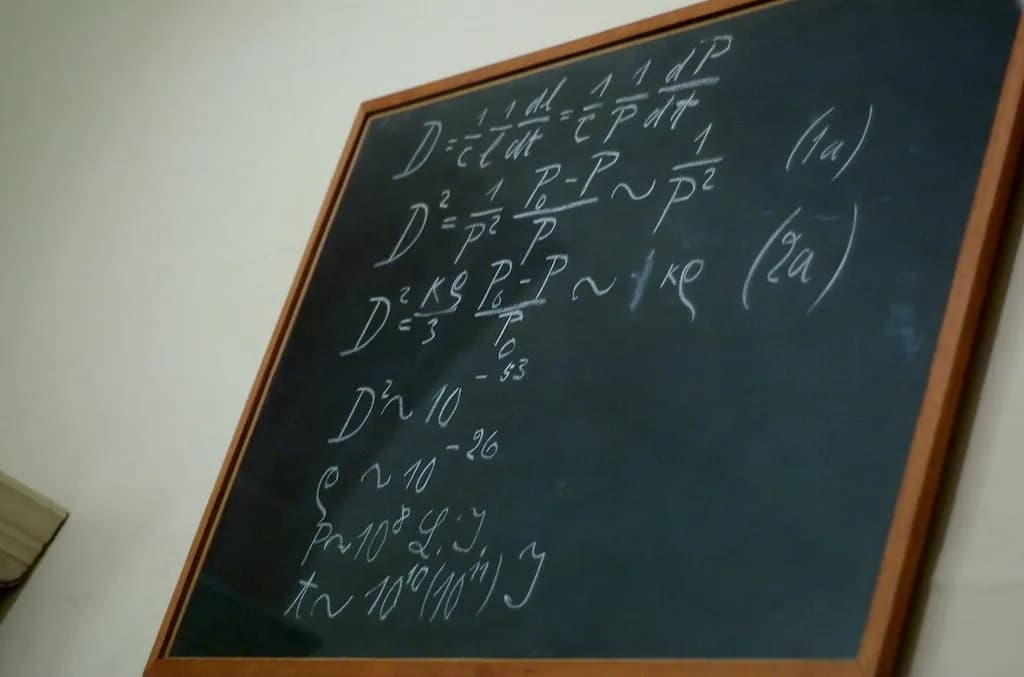 D = 1/c 1/l dl/dt = 1/c 1/P dP/dt
D² = 1/P² P₀-P/P ~ 1/P² (1a)
D² = κρ/3 P₀-P/P₀ ~ κρ (2a)
D² ~ 10⁻⁵³
ρ ~ 10⁻²⁶
P ~ 10⁸ L.y.
t ~ 10¹⁰(10¹¹) y